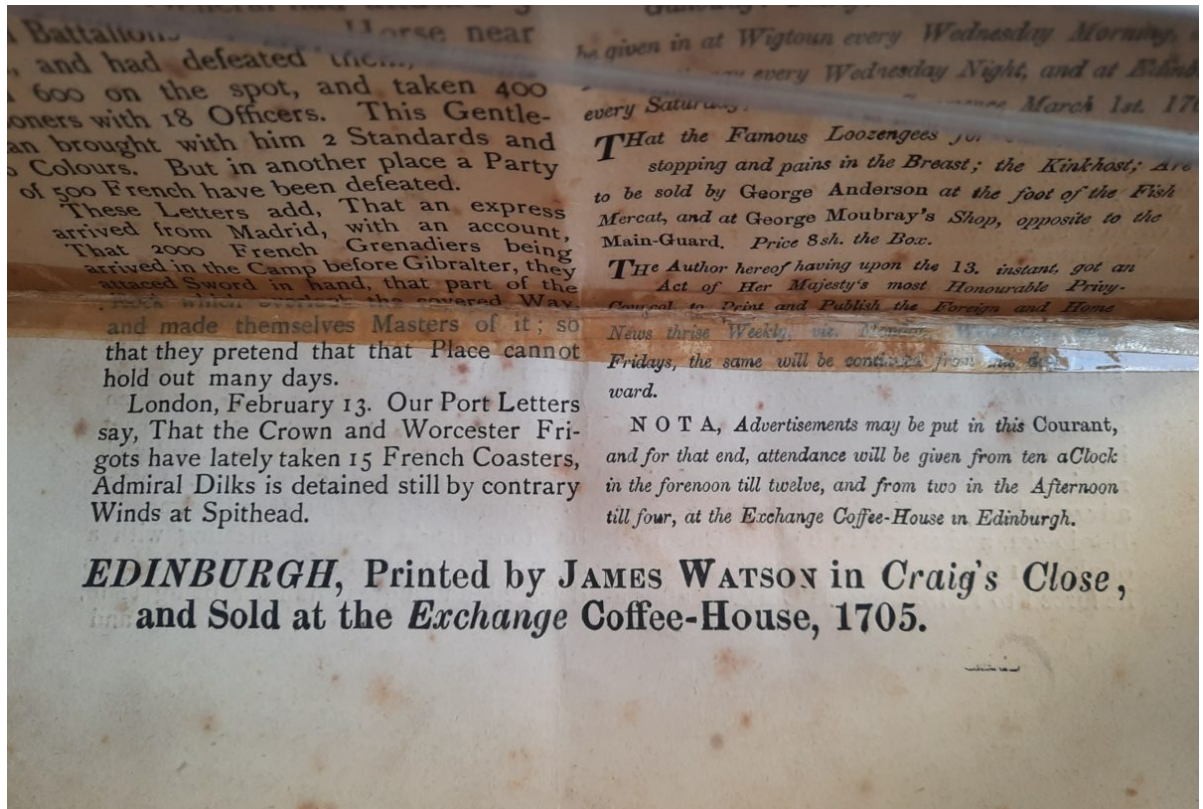 Battalions Horse near
and had defeated them,
600 on the spot, and taken 400
oners with 18 Officers. This Gentle-
an brought with him 2 Standards and
Colours. But in another place a Party
of 500 French have been defeated.
These Letters add, That an express
arrived from Madrid, with an account,
That 2000 French Grenadiers being
arrived in the Camp before Gibralter, they
attaced Sword in hand, that part of the
which the covered Way,
and made themselves Masters of it; so
that they pretend that that Place cannot
hold out many days.
London, February 13. Our Port Letters
say, That the Crown and Worcester Fri-
gots have lately taken 15 French Coasters,
Admiral Dilks is detained still by contrary
Winds at Spithead.
be given in at Wigtoun every Wednesday Morning,
every Wednesday Night, and at Edinb
every Saturday, March 1st. 170
THat the Famous Loozengees for
stopping and pains in the Breast; the Kinkhost; Are
to be sold by George Anderson at the foot of the Fish
Mercat, and at George Moubray's Shop, opposite to the
Main-Guard. Price 8sh. the Box.
THe Author hereof having upon the 13. instant, got an
Act of Her Majesty's most Honourable Privy-
Councel to Print and Publish the Foreign and Home
News thrise Weekly, viz.
Fridays, the same will be continued from
ward.
NOTA, Advertisements may be put in this Courant,
and for that end, attendance will be given from ten aClock
in the forenoon till twelve, and from two in the Afternoon
till four, at the Exchange Coffee-House in Edinburgh.
EDINBURGH, Printed by JAMES WATSON in Craig's Close,
and Sold at the Exchange Coffee-House, 1705.